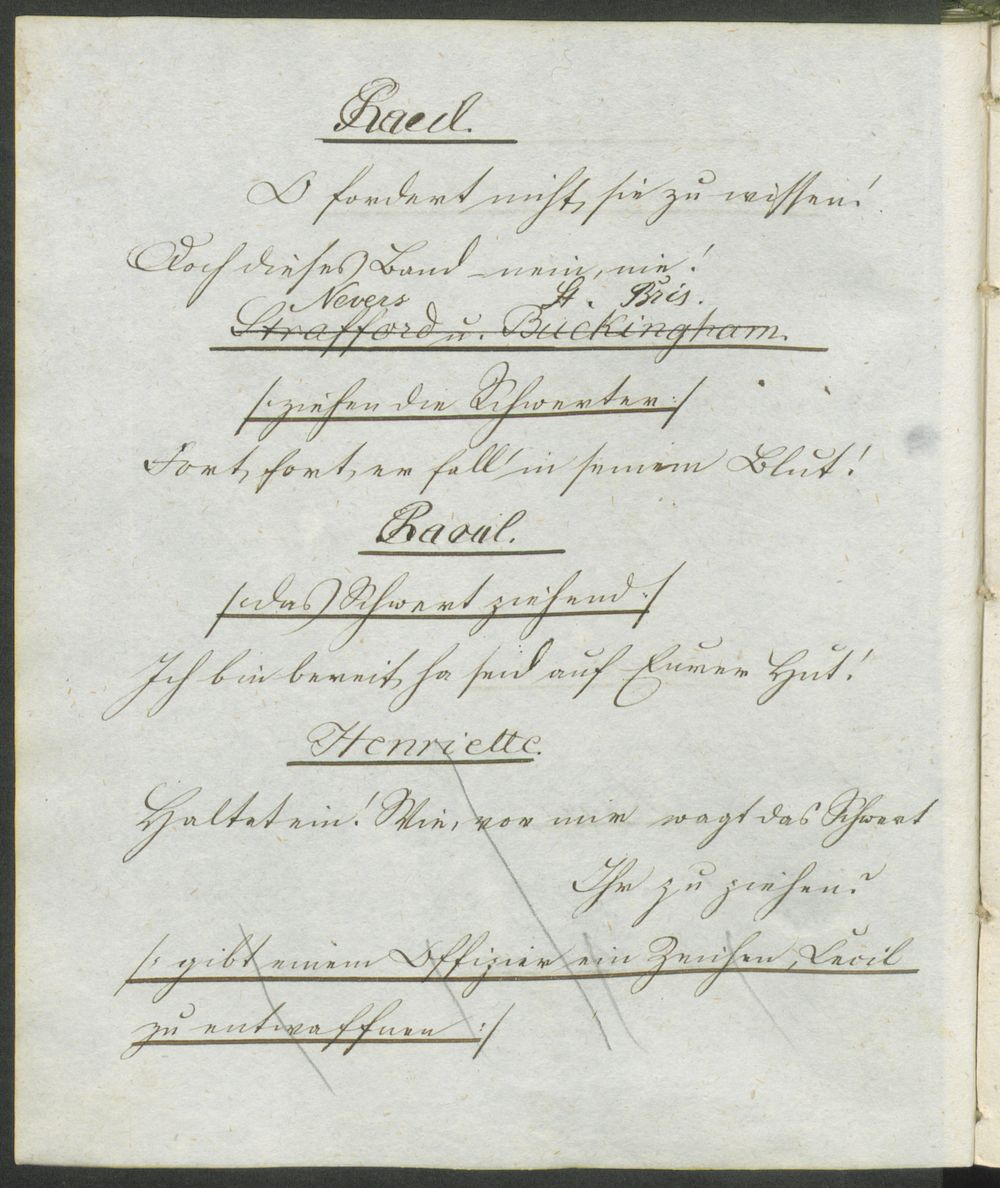 Raoul.
O fordert nicht, sie zu wissen!
Doch dieses Band – nein, nie!
Nevers St. Bris.
Strafford u. Buckingham.
/: ziehen die Schwerter :/
Fort, fort, er fall' in seinem Blut!
Raoul.
/: das Schwert ziehend :/
Ich bin bereit, ha seid auf Eurer Hut!
Henriette.
Haltet ein! Wie, vor mir wagt das Schwert
Ihr zu ziehen?
/: gibt einem Offizier ein Zeichen, Cecil
zu entwaffnen :/